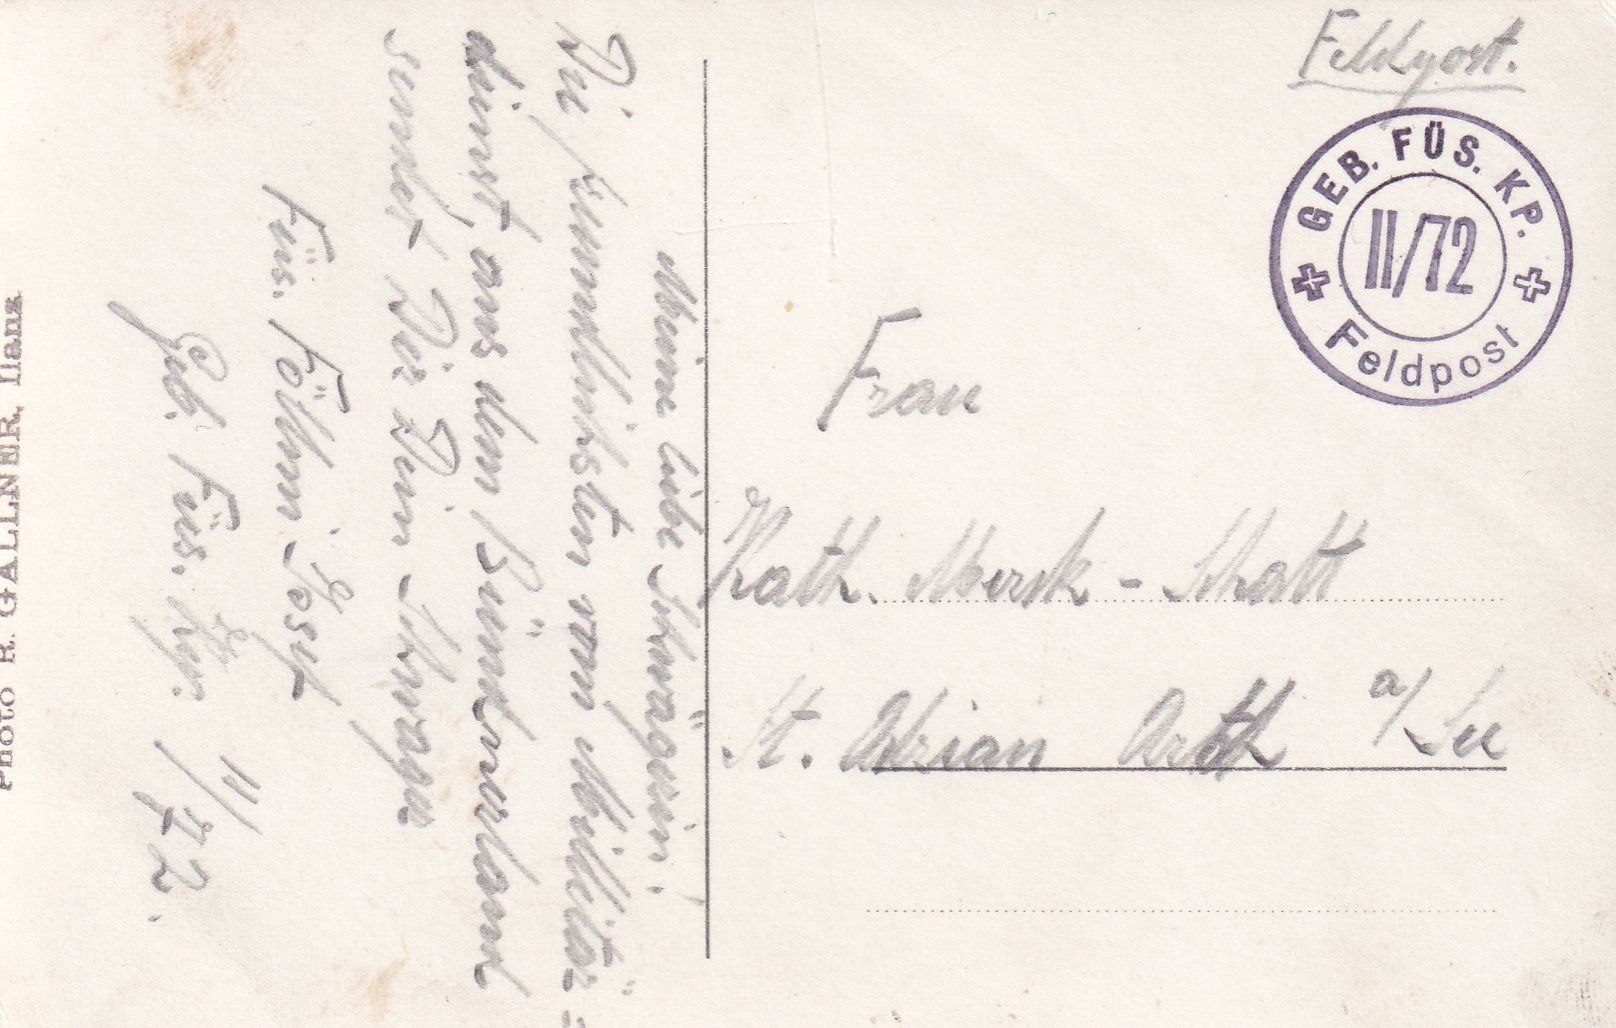 Feldpost.
GEB. FÜS. KP.
II/72
Feldpost
Frau
Kath. Merk - Schatt
St. Adrian Arth a/See
Meine liebe Schwägerin!
Die freundlichsten vom Militär=
dienst aus dem Bündnerland
sendet Dir Dein Schwager
Füs. Föllmi Josef
Geb. Füs. Kp. II/72.
PHOTO R. GALLNER, Ilanz